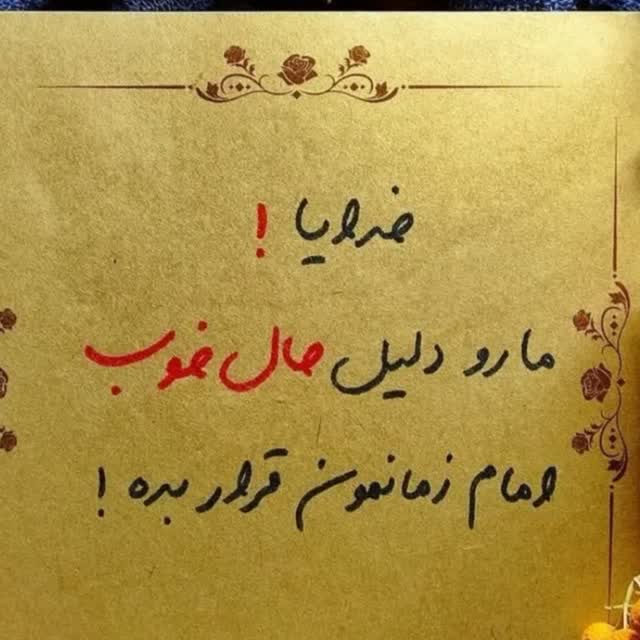 خدایا !
مارو دلیل حال خوب
امام زمانمون قرار بده !